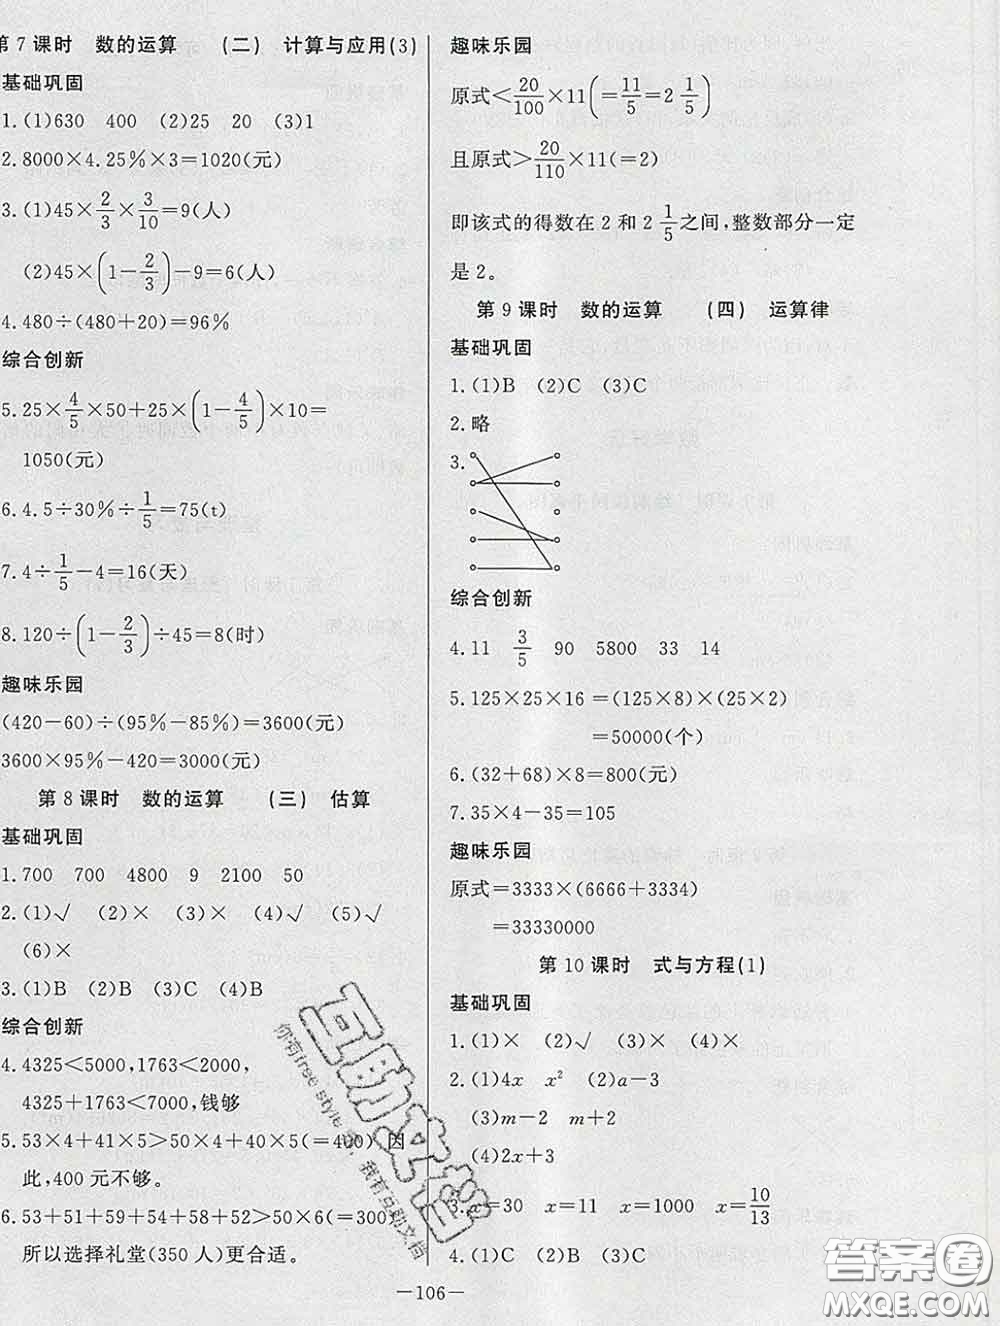 第7课时 数的运算 (二) 计算与应用(3)
基础巩固
1.(1)630 400 (2)25 20 (3)1
2.8000×4.25%×3=1020(元)
3.(1)45×2/3×3/10=9(人)
(2)45×(1-2/3)-9=6(人)
4.480÷(480+20)=96%
综合创新
5.25×4/5×50+25×(1-4/5)×10=
1050(元)
6.4.5÷30%÷1/5=75(t)
7.4÷1/5-4=16(天)
8.120÷(1-2/3)÷45=8(时)
趣味乐园
(420-60)÷(95%-85%)=3600(元)
3600×95%-420=3000(元)
第8课时 数的运算 (三) 估算
基础巩固
1.700 700 4800 9 2100 50
2.(1)√ (2)× (3)× (4)√ (5)√
(6)×
3.(1)B (2)B (3)C (4)B
综合创新
4.4325<5000,1763<2000,
4325+1763<7000,钱够
5.53×4+41×5>50×4+40×5(=400) 因
此,400元不够。
6.53+51+59+54+58+52>50×6(=300)
所以选择礼堂(350人)更合适。
趣味乐园
原式<20/100×11(=11/5=2 1/5)
且原式>20/110×11(=2)
即该式的得数在2和2 1/5之间,整数部分一定
是2。
第9课时 数的运算 (四) 运算律
基础巩固
1.(1)B (2)C (3)C
2.略
3.
综合创新
4.11 3/5 90 5800 33 14
5.125×25×16=(125×8)×(25×2)
=50000(个)
6.(32+68)×8=800(元)
7.35×4-35=105
趣味乐园
原式=3333×(6666+3334)
=33330000
第10课时 式与方程(1)
基础巩固
1.(1)× (2)√ (3)× (4)×
2.(1)4x x² (2)a-3
(3)m-2 m+2
(4)2x+3
3.x=30 x=11 x=1000 x=10/13
4.(1)C (2)B (3)C (4)C
—106—
互助文档
你有free style么,我有互助文档
答案圈
MXQE.COM